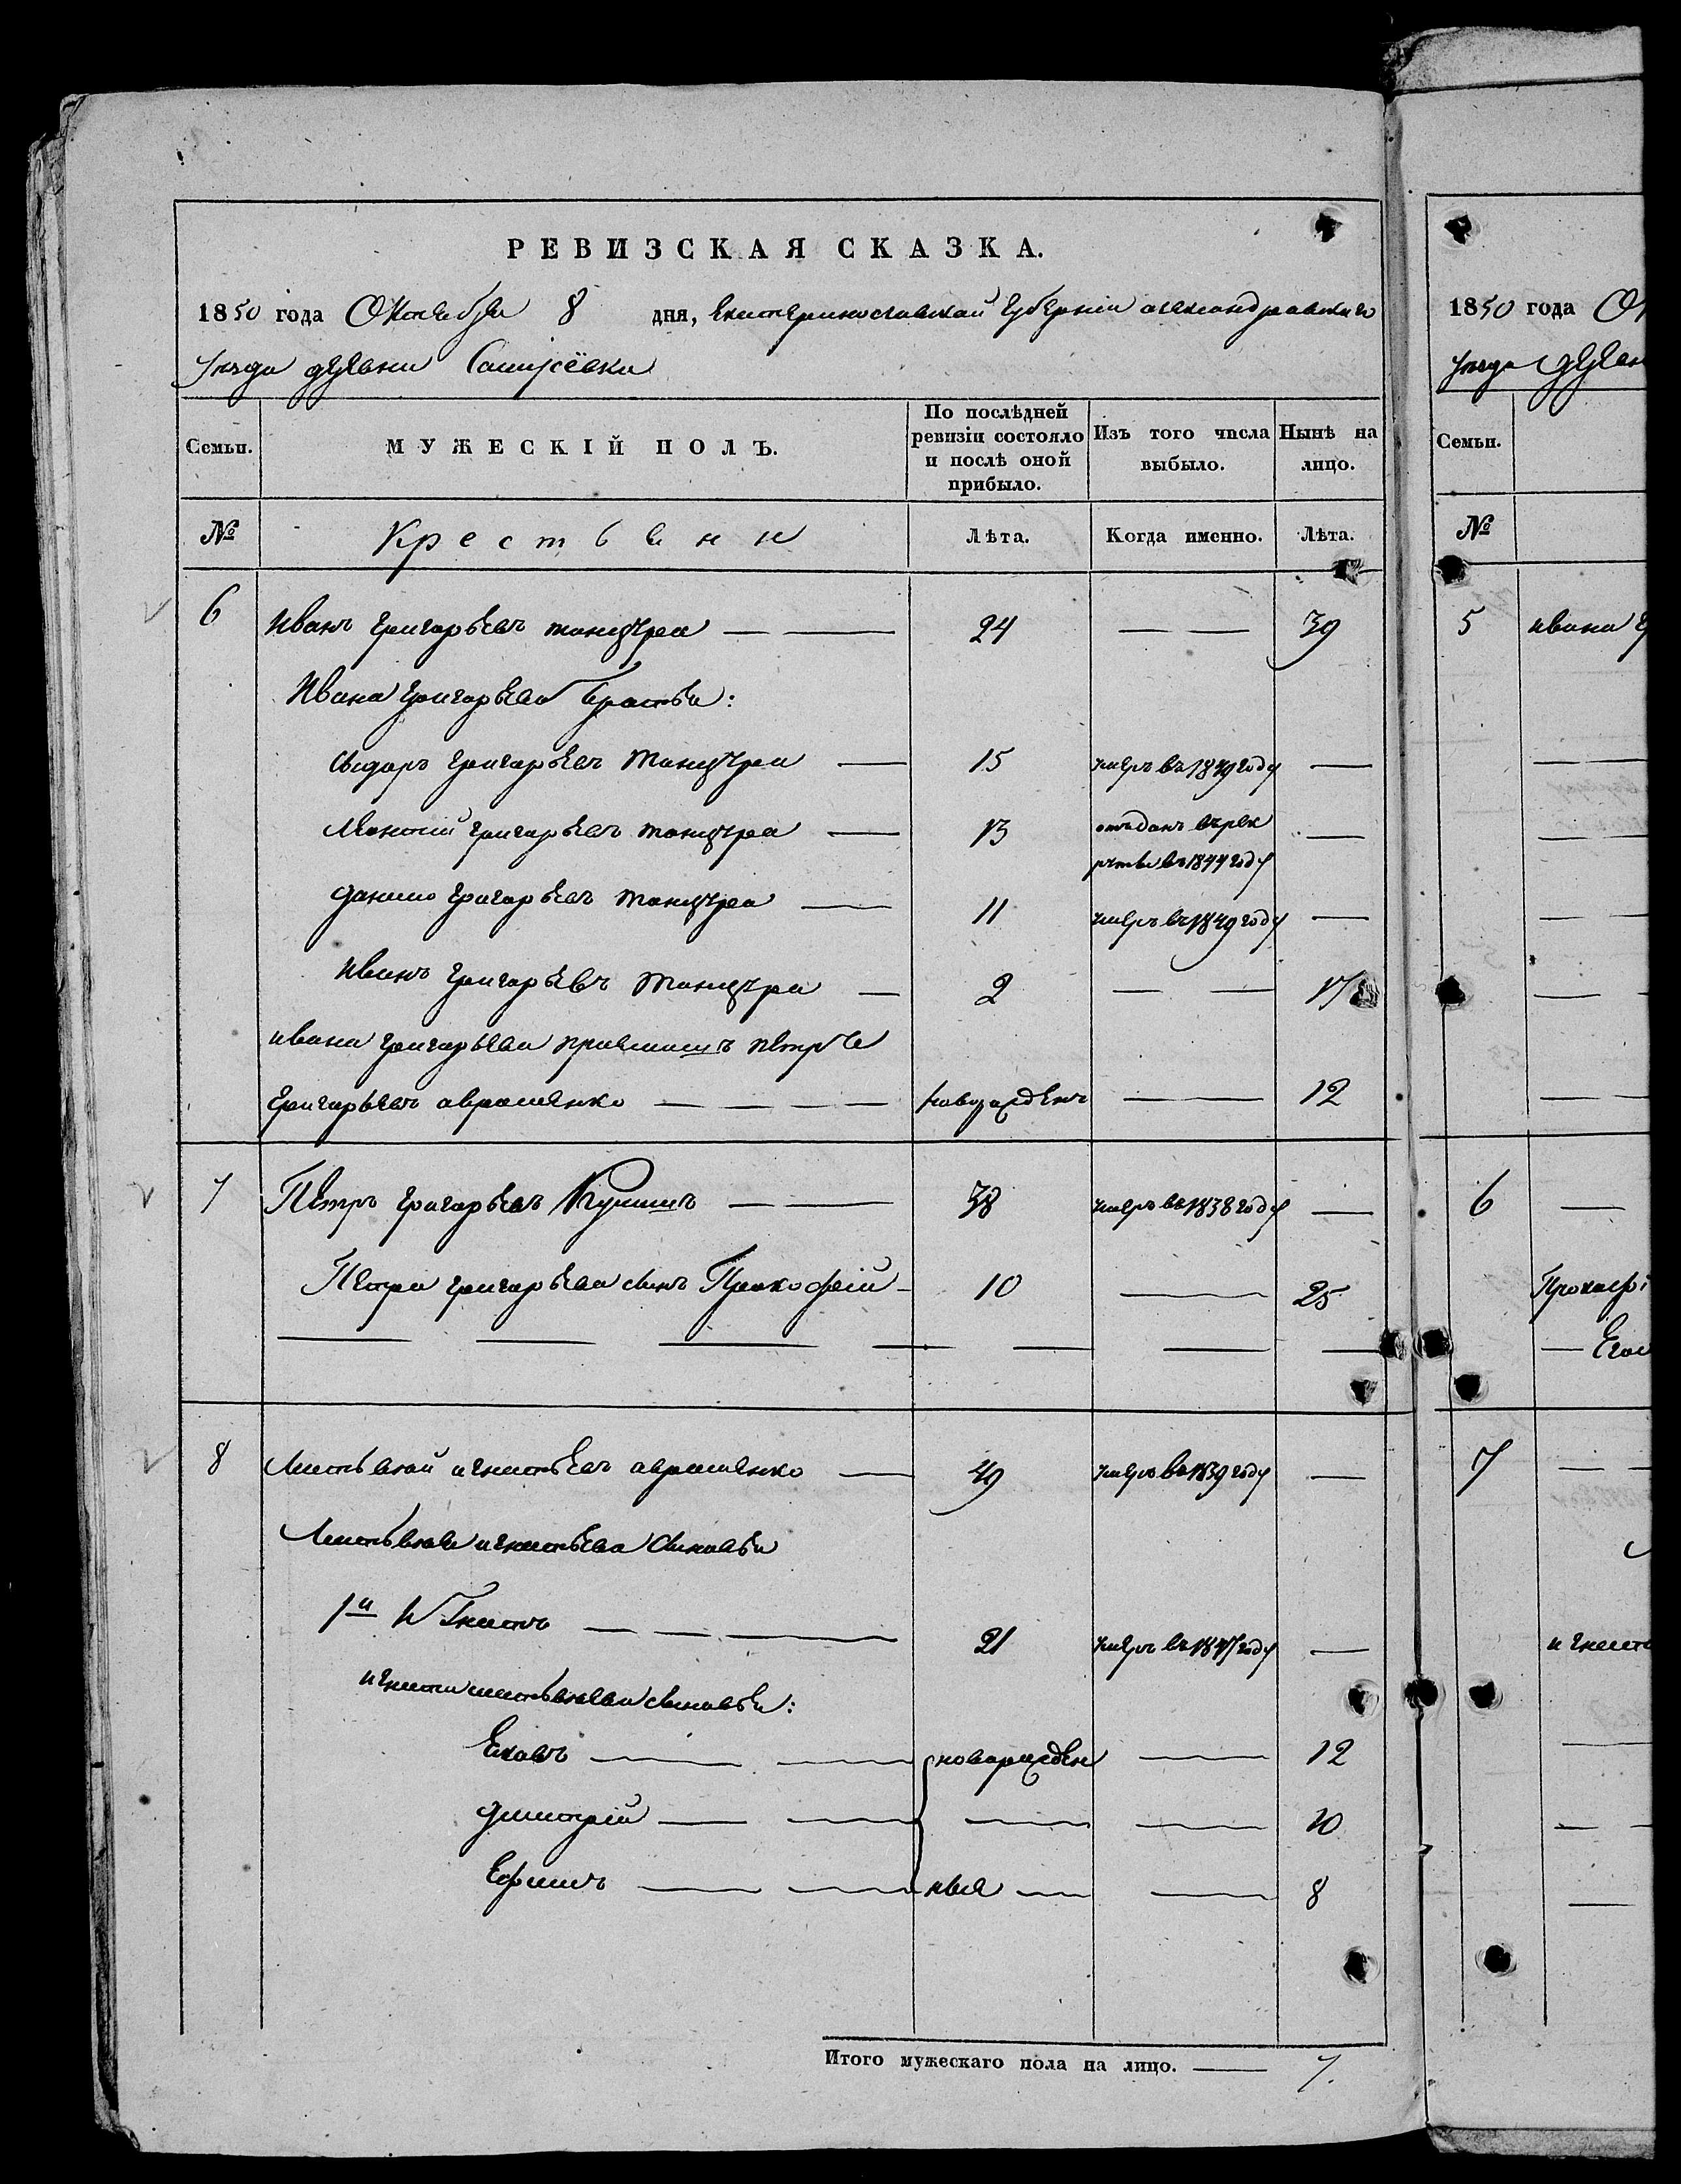 РЕВИЗСКАЯ СКАЗКА.
1850 года Октября 8 дня, Екатеринославской Губерніи александравскаго
уезда дуревни
Семьи.
МУЖЕСКІЙ ПОЛЪ.
По послѣдней ревизіи состояло и послѣ оной прибыло.
Изъ того числа выбыло.
Ныне на лицо.
№ Крестьяни Лѣта. Когда именно. Лѣта.
6 Иванъ григарьевъ — — 24 — — 39
Ивана григарьева братья:
Сидаръ григарьевъ — 15 умеръ въ 1849 году —
григарьевъ — 13 отъданъ въ рек
рутъы въ 1844 году —
данило григарьевъ — 11 умеръ въ 1849 году —
Иванъ григарьевъ — 2 — — 17
ивана григарьева приемышъ петръ
григарьевъ авраменко — — — — новорожденъ — — 12
7 Петръ григарьевъ — — 38 умеръ въ 1838 году —
Петра григарьева сынъ Пракофей — 10 — 25
— — — — — — —
8 Матьвюй игнатьевъ авраменко — 49 умеръ въ 1839 году —
Матьвюя игнатьева сыновья
1й Игнатъ — — — 21 умеръ въ 1847 году —
игната матьвюева сыновья:
— — — новарожден — 12
дмитрій — — — — — 10
Ефимъ — — ныя — — 8
Итого мужескаго пола на лицо. — 7.
1850 года Ок
уезда
Семьи.
№
5 ивана г
— —
— —
— —
— —
— —
6 —
Прокофі
—
7 — —
игната
—
— —
—